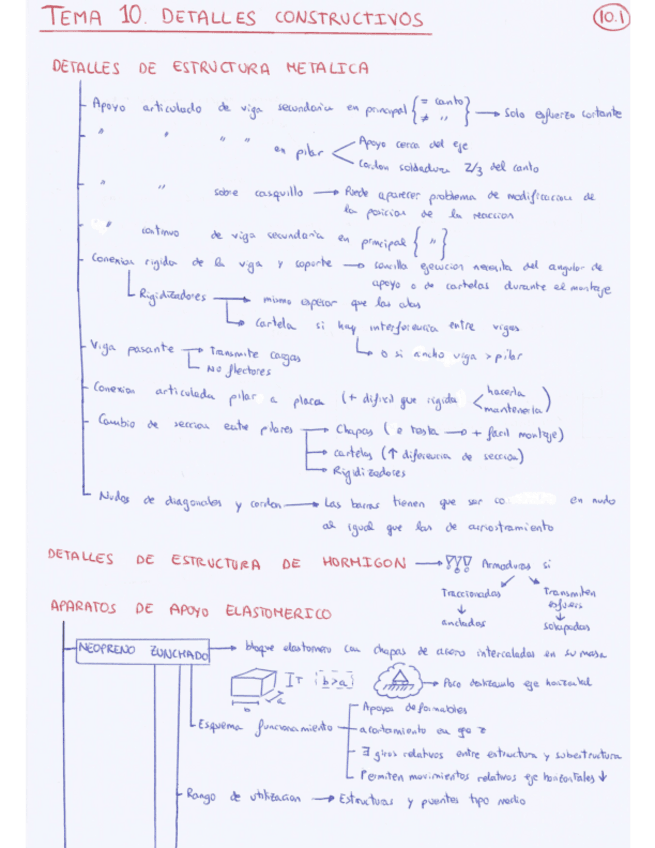 TEMA 10. DETALLES CONSTRUCTIVOS 10.1
DETALLES DE ESTRUCTURA METALICA
Apoyo articulado de viga secundaria en principal { = canto } → Solo esfuerzo cortante
{ ≠ " }
" " " " en pilar < Apoyo cerca del eje
Cordon soldadura 2/3 del canto
" " sobre casquillo → Puede aparecer problema de modificacion de
la posicion de la reaccion
" continuo de viga secundaria en principal { " }
Conexion rigida de la viga y soporte → sencilla ejecucion necesita del angular de
apoyo o de cartelas durante el montaje
Rigidizadores → mismo espesor que las alas
→ Cartela si hay interferencia entre vigas
→ o si ancho viga > pilar
Viga pasante → Transmite cargas
No flectores
Conexion articulada pilar a placa (+ dificil que rigida < hacerla
mantenerla )
Cambio de seccion entre pilares → Chapas ( a testa → + facil montaje)
→ cartelas (↑ diferencia de seccion)
→ Rigidizadores
Nudos de diagonales y cordon → Las barras tienen que ser co en nudo
al igual que las de arriostramiento
DETALLES DE ESTRUCTURA DE HORMIGON → Armaduras si
Traccionadas Transmiten
↓ esfuers
ancladas ↓
solapadas
APARATOS DE APOYO ELASTOMERICO
NEOPRENO ZUNCHADO → bloque elastomero con chapas de acero intercaladas en su masa
T b>a → Poco deslizando eje horizontal
b a
Esquema funcionamiento Apoyos deformables
acortamiento en eje z
∃ giros relativos entre estructura y subestructura
Permiten movimientos relativos eje horizontales ↓
Rango de utilizacion → Estructuras y puentes tipo medio